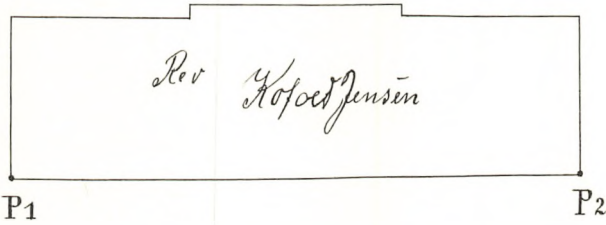 Rev Kofoed Jensen
P1 P2